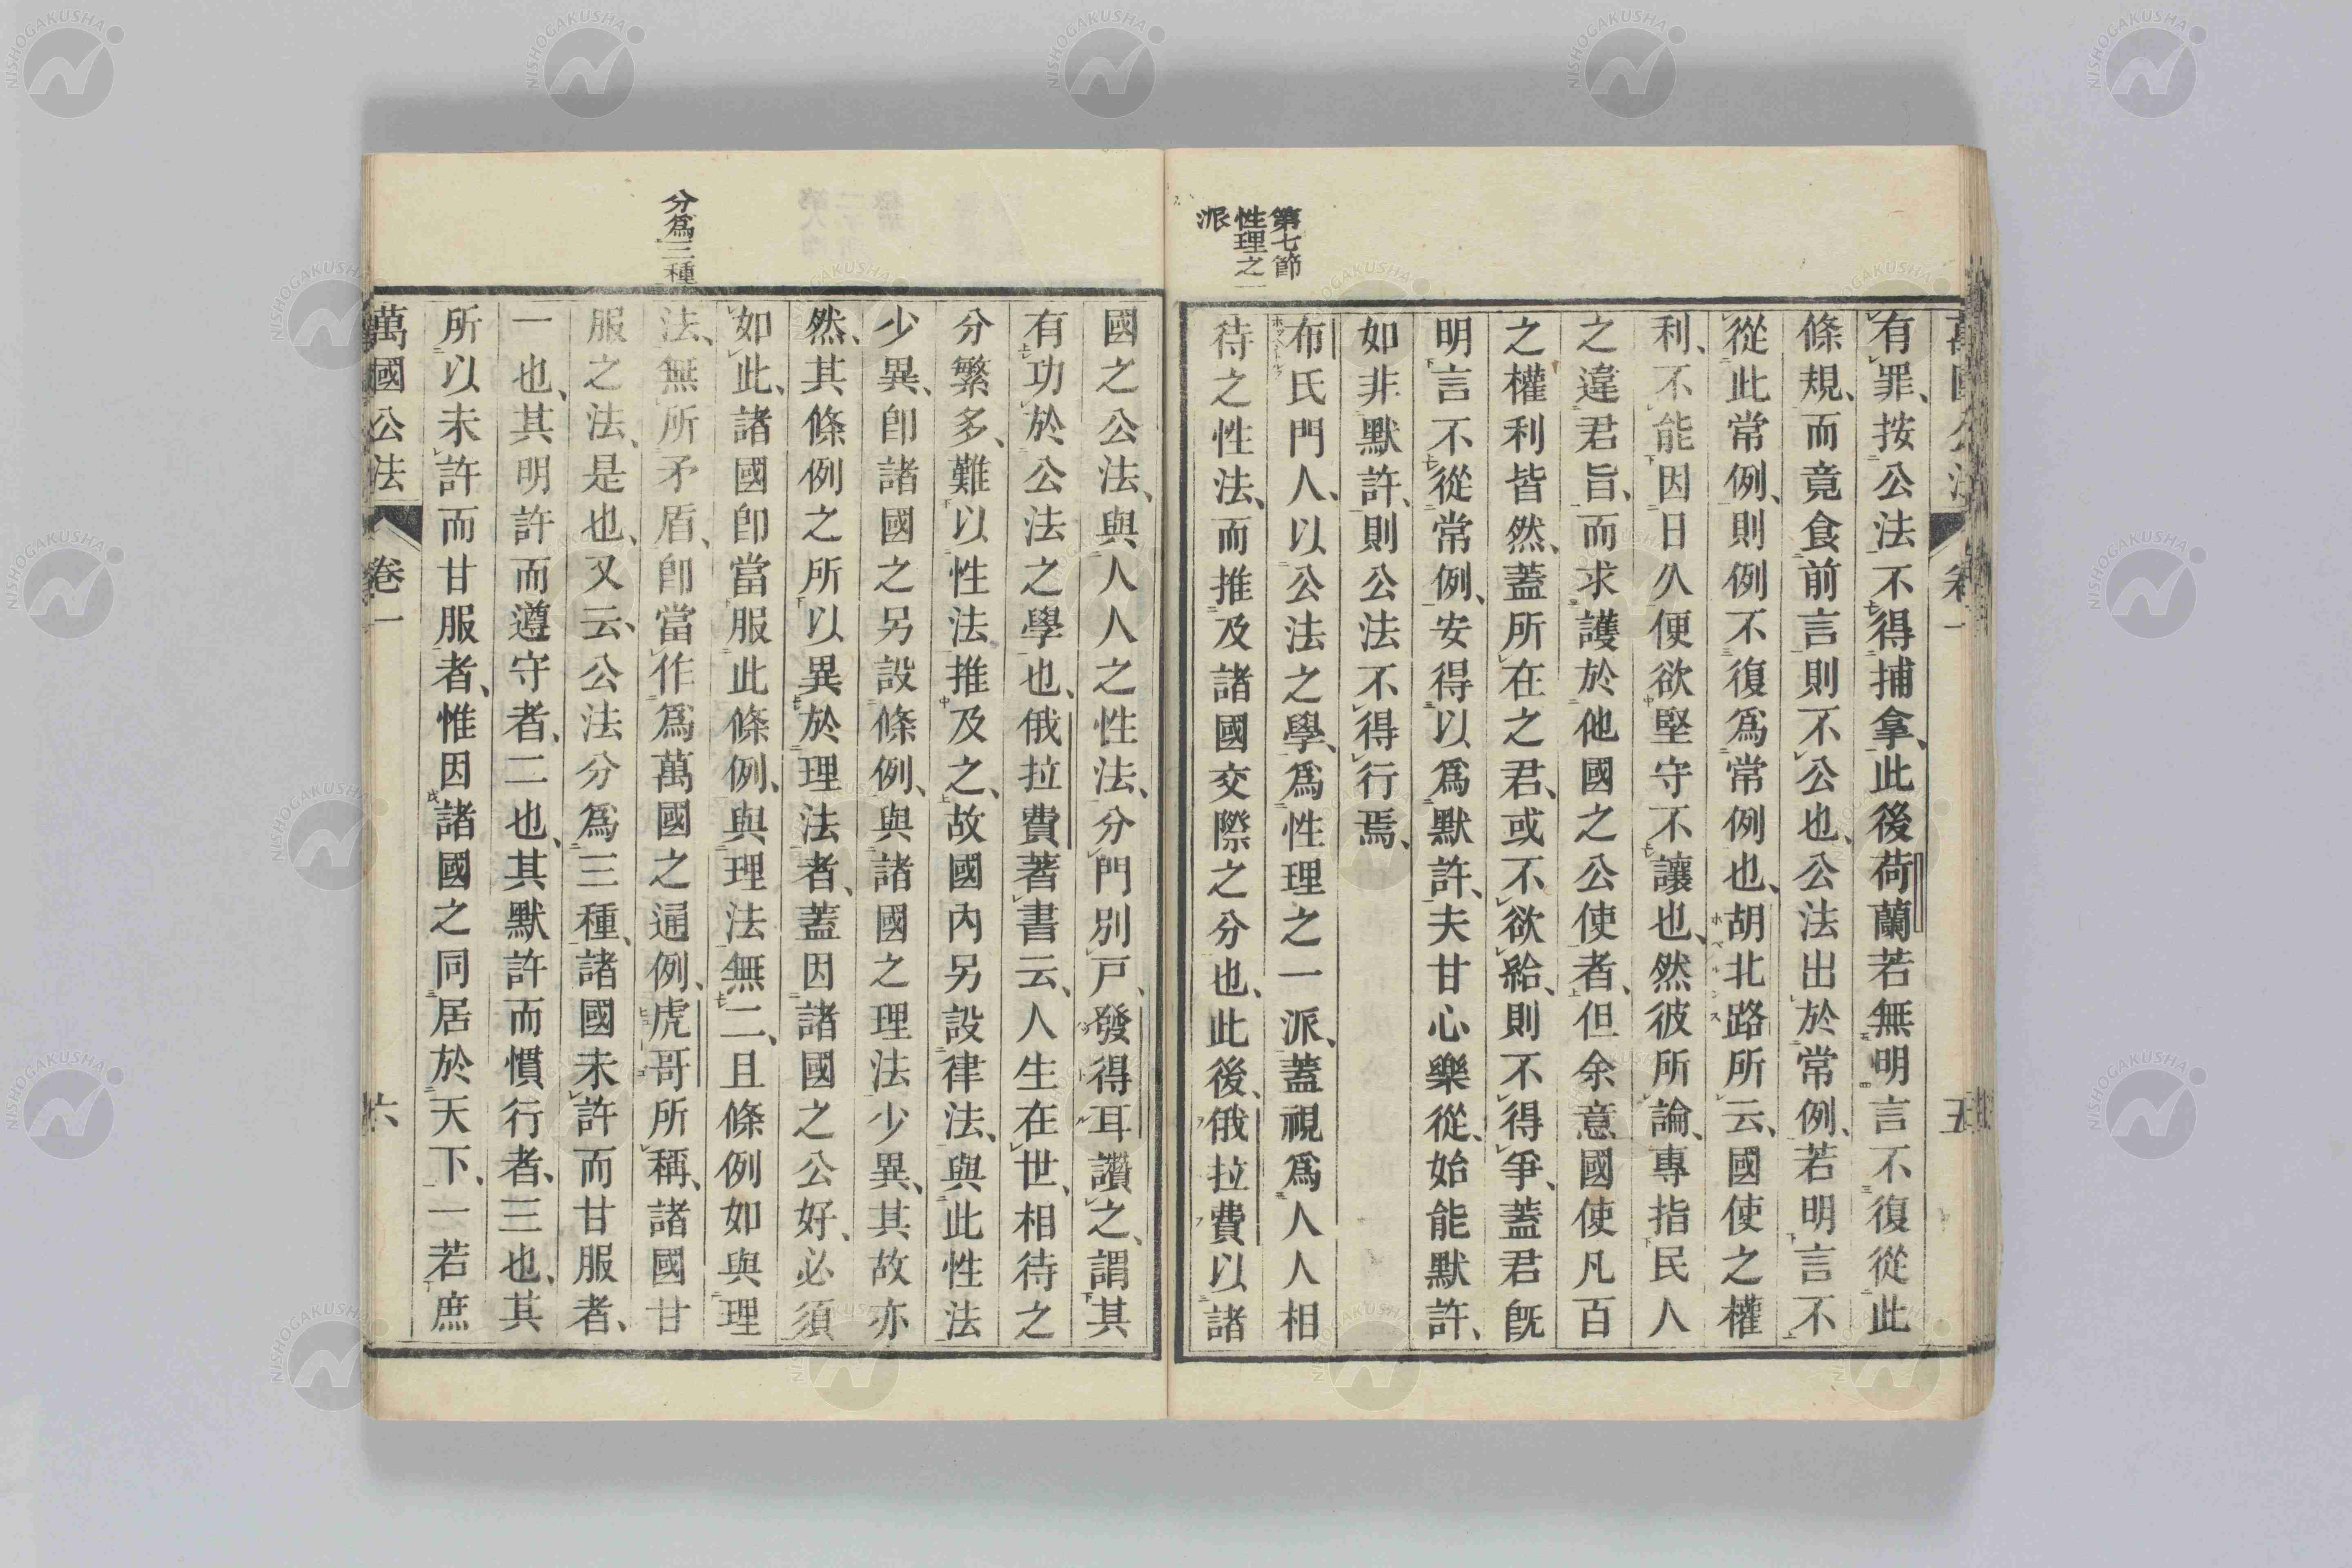 萬國公法 卷一 五
有罪、按公法不得捕拿、此後荷蘭若無明言不復從此
條規、而竟食前言則不公也、公法出於常例、若明言不
從此常例、則例不復爲常例也、胡北路所云、國使之權
利、不能因日久便欲堅守不讓也、然彼所論、專指民人
之違君旨、而求護於他國之公使者、但余意國使凡百
之權利皆然、蓋所在之君、或不欲給、則不得爭、蓋君旣
明言不從常例、安得以爲默許、夫甘心樂從、始能默許、
如非默許、則公法不得行焉、
第七節
性理之一
派
布氏門人、以公法之學、爲性理之一派、蓋視爲人人相
待之性法、而推及諸國交際之分也、此後、俄拉費以諸
國之公法、與人人之性法、分門別戸、發得耳讚之、謂其
有功於公法之學也、俄拉費著書云、人生在世、相待之
分繁多、難以性法推及之、故國內另設律法、與此性法
少異、卽諸國之另設條例、與諸國之理法少異、其故亦
然、其條例之所以異於理法者、蓋因諸國之公好、必須
如此、諸國卽當服此條例、與理法無二、且條例如與理
法、無所矛盾、卽當作爲萬國之通例、虎哥所稱、諸國甘
分爲三種
服之法、是也、又云、公法分爲三種、諸國未許而甘服者、
一也、其明許而遵守者、二也、其默許而慣行者、三也、其
所以未許而甘服者、惟因諸國之同居於天下、一若庶
萬國公法 卷一 六
NISHOGAKUSHA